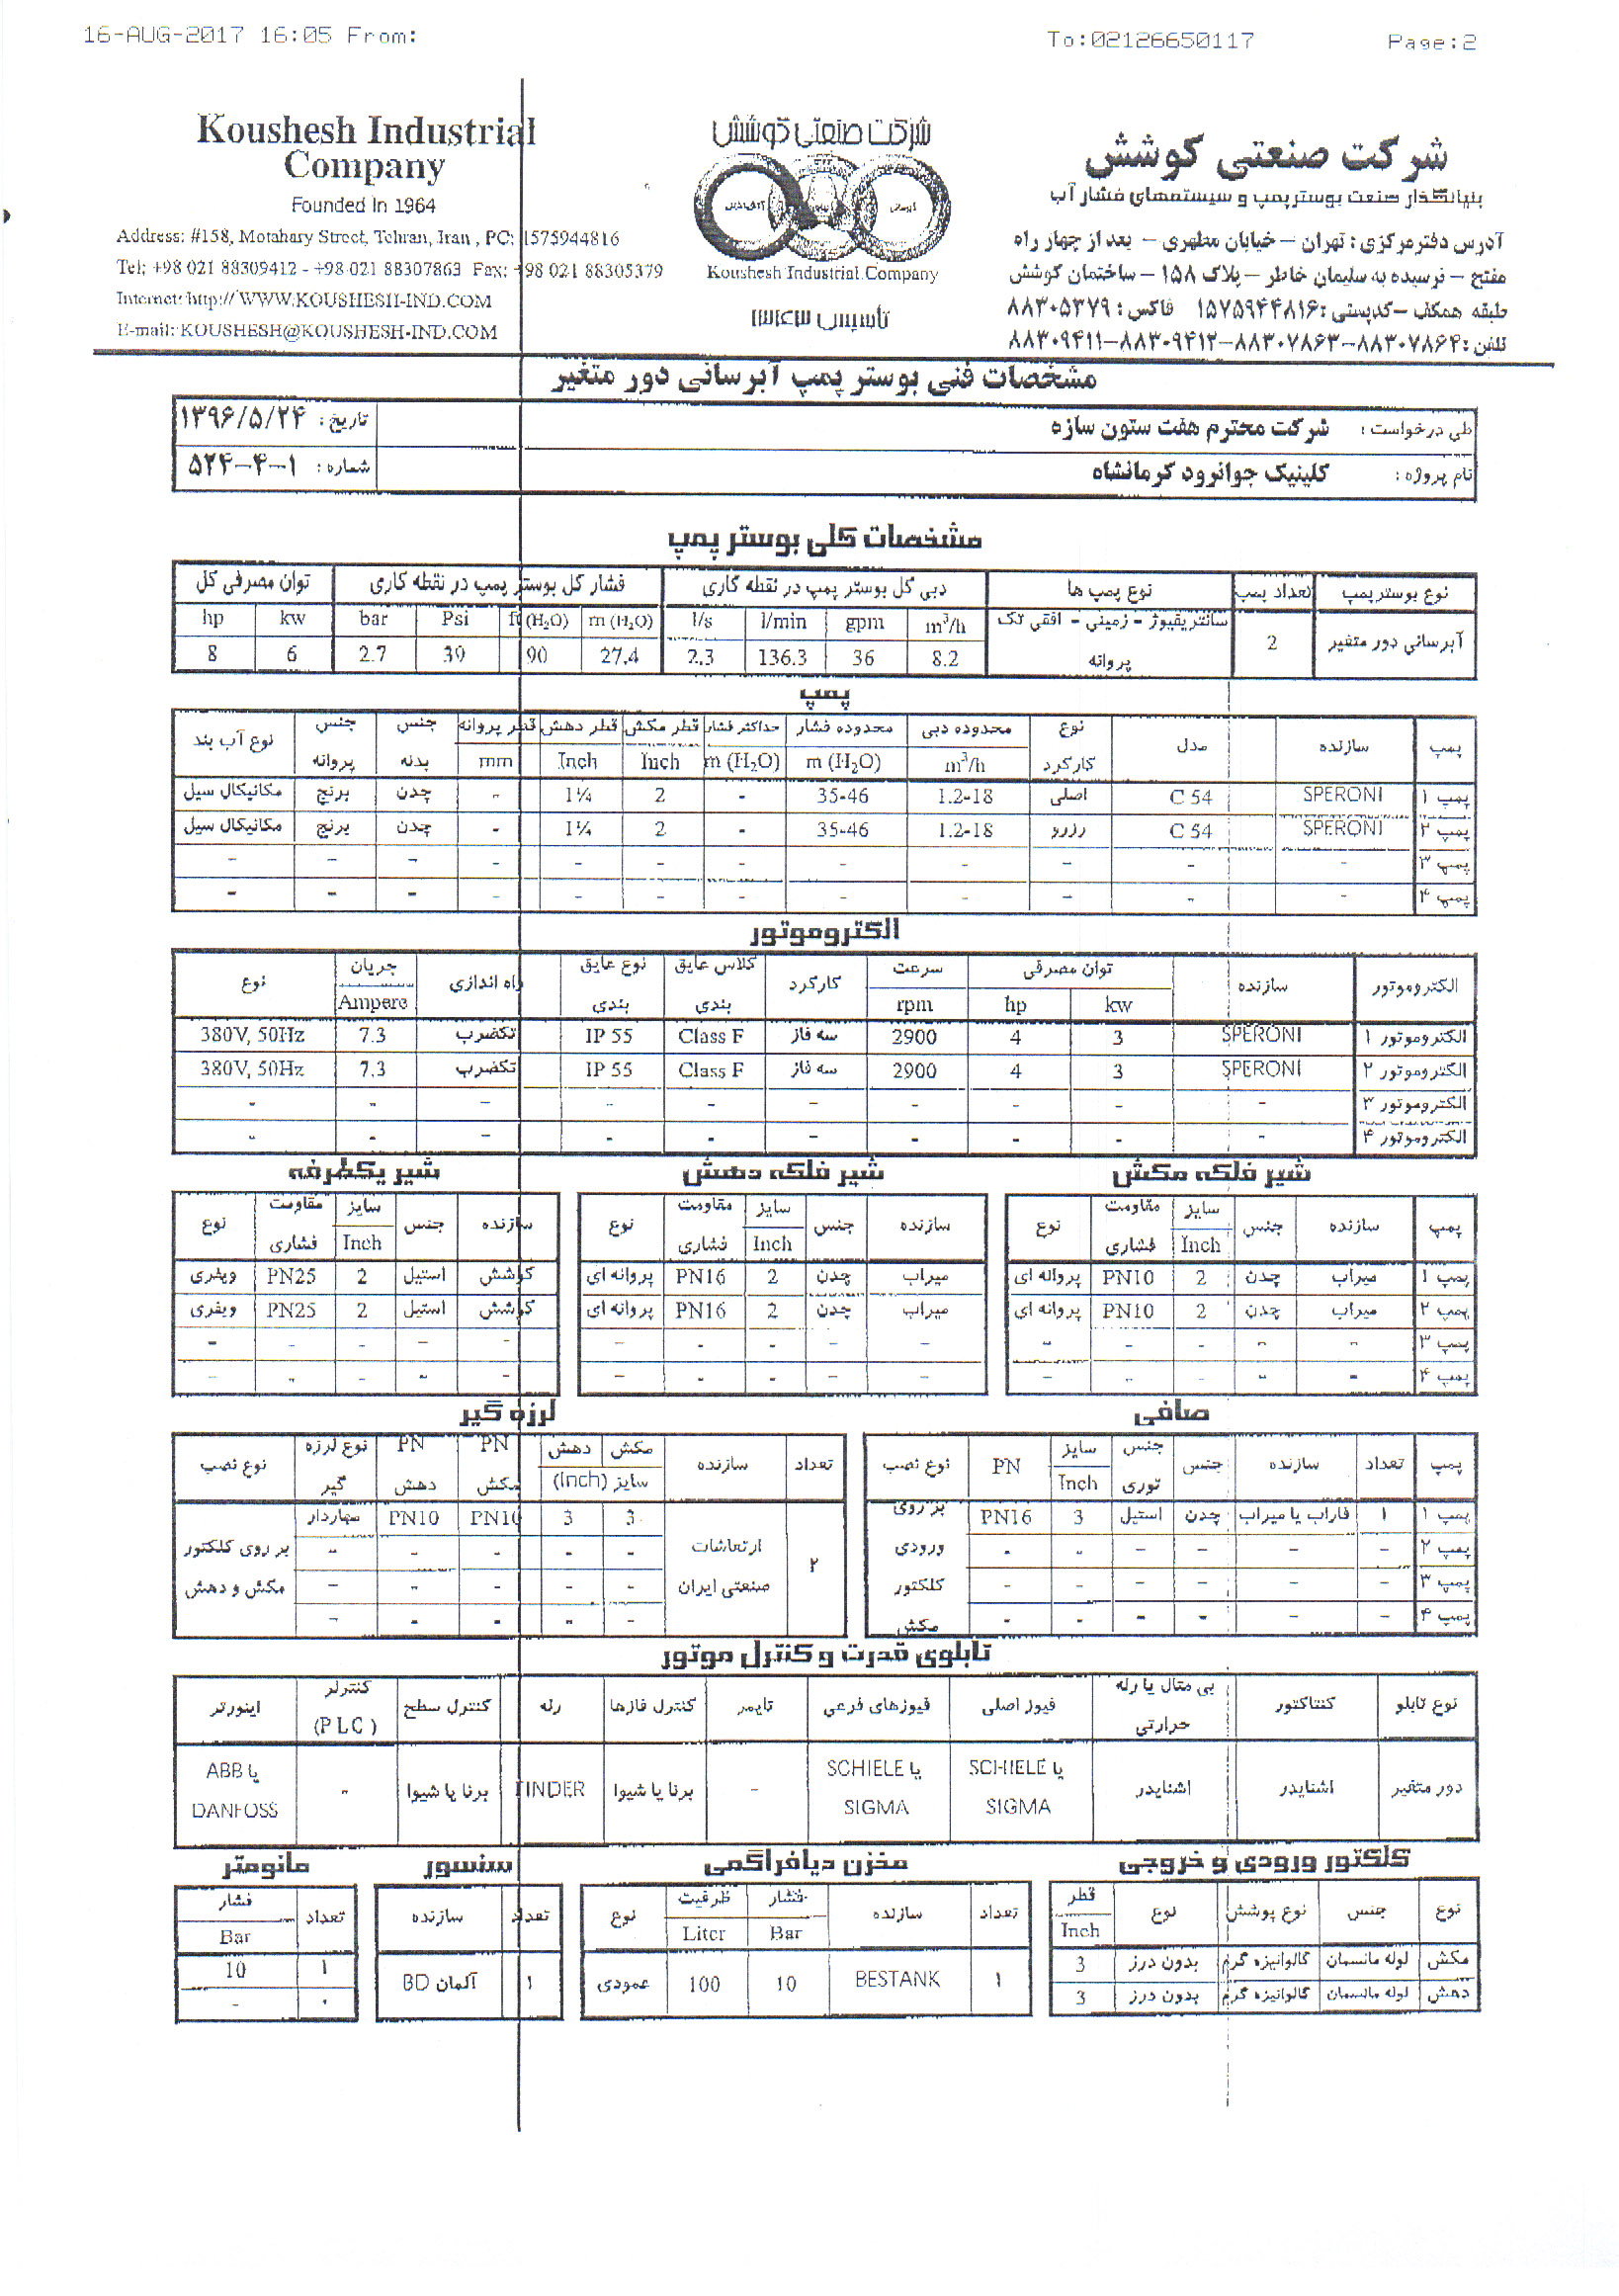 16-AUG-2017 16:05 From: To:02126650117 Page:2
Koushesh Industrial
Company
Founded In 1964
Address: #158, Motahary Street, Tehran, Iran , PC: 1575944816
Tel: +98 021 88309412 - +98 021 88307863 Fax: +98 021 88305379
Internet: http://WWW.KOUSHESH-IND.COM
E-mail: KOUSHESH@KOUSHESH-IND.COM
شرکت صنعتی کوشش
Koushesh Industrial Company
تاسیس ۱۳۴۳
شرکت صنعتی کوشش
بنیانگذار صنعت بوسترپمپ و سیستمهای فشار آب
آدرس دفترمرکزی : تهران – خیابان مطهری – بعد از چهار راه
مفتح – نرسیده به سلیمان خاطر – پلاک ۱۵۸ – ساختمان کوشش
طبقه همکف – کدپستی : ۱۵۷۵۹۴۴۸۱۶ فاکس : ۸۸۳۰۵۳۷۹
تلفن : ۸۸۳۰۷۸۶۴–۸۸۳۰۷۸۶۳–۸۸۳۰۹۴۱۲–۸۸۳۰۹۴۱۱
مشخصات فنی بوستر پمپ آبرسانی دور متغیر
طی درخواست : شرکت محترم هفت ستون سازه تاریخ : ۱۳۹۶/۵/۲۴
نام پروژه : کلینیک جوانرود کرمانشاه شماره : ۱–۴–۵۲۴
مشخصات کلی بوستر پمپ
نوع بوستر پمپ تعداد پمپ نوع پمپ ها دبی کل بوستر پمپ در نقطه کاری فشار کل بوستر پمپ در نقطه کاری توان مصرفی کل
m³/h gpm l/min l/s m (H₂O) ft (H₂O) Psi bar kw hp
آبرسانی دور متغیر 2 سانتریفیوژ – زمینی – افقی تک پروانه 8.2 36 136.3 2.3 27.4 90 39 2.7 6 8
پمپ
پمپ سازنده مدل نوع کارکرد محدوده دبی محدوده فشار حداکثر فشار قطر مکش قطر دهش قطر پروانه جنس بدنه جنس پروانه نوع آب بند
m³/h m (H₂O) m (H₂O) Inch Inch mm
پمپ ۱ SPERONI C 54 اصلی 1.2-18 35-46 - 2 1¼ - چدن برنج مکانیکال سیل
پمپ ۲ SPERONI C 54 رزرو 1.2-18 35-46 - 2 1¼ - چدن برنج مکانیکال سیل
پمپ ۳ - - - - - - - - - - - -
پمپ ۴ - - - - - - - - - - - -
الکتروموتور
الکتروموتور سازنده توان مصرفی سرعت کارکرد کلاس عایق بندی نوع عایق بندی راه اندازی جریان نوع
kw hp rpm Ampere
الکتروموتور ۱ SPERONI 3 4 2900 سه فاز Class F IP 55 تکضرب 7.3 380V, 50Hz
الکتروموتور ۲ SPERONI 3 4 2900 سه فاز Class F IP 55 تکضرب 7.3 380V, 50Hz
الکتروموتور ۳ - - - - - - - - -
الکتروموتور ۴ - - - - - - - - -
شیر فلکه مکش شیر فلکه دهش شیر یکطرفه
پمپ سازنده جنس سایز Inch مقاومت فشاری نوع سازنده جنس سایز Inch مقاومت فشاری نوع سازنده جنس سایز Inch مقاومت فشاری نوع
پمپ ۱ میراب چدن 2 PN10 پروانه ای میراب چدن 2 PN16 پروانه ای کوشش استیل 2 PN25 ویفری
پمپ ۲ میراب چدن 2 PN10 پروانه ای میراب چدن 2 PN16 پروانه ای کوشش استیل 2 PN25 ویفری
پمپ ۳ - - - - - - - - - - - - - - -
پمپ ۴ - - - - - - - - - - - - - - -
صافی
پمپ تعداد سازنده جنس جنس توری سایز Inch PN نوع نصب
پمپ ۱ ۱ فاراب یا میراب چدن استیل 3 PN16 بر روی ورودی کلکتور مکش
پمپ ۲ - - - - - -
پمپ ۳ - - - - - -
پمپ ۴ - - - - - -
لرزه گیر
تعداد سازنده مکش دهش سایز (Inch) PN مکش PN دهش نوع لرزه گیر نوع نصب
۲ ارتعاشات صنعتی ایران 3 3 PN10 PN10 مهاردار بر روی کلکتور مکش و دهش
- - - - -
- - - - -
- - - - -
تابلوی قدرت و کنترل موتور
نوع تابلو کنتاکتور بی متال یا رله حرارتی فیوز اصلی فیوزهای فرعی تایمر کنترل فازها رله کنترل سطح کنترلر (PLC) اینورتر
دور متغیر اشنایدر اشنایدر SCHIELE یا SIGMA SCHIELE یا SIGMA - برنا یا شیوا FINDER برنا یا شیوا - ABB یا DANFOSS
کلکتور ورودی و خروجی
نوع جنس نوع پوشش نوع قطر Inch
مکش لوله مانسمان گالوانیزه گرم بدون درز 3
دهش لوله مانسمان گالوانیزه گرم بدون درز 3
مخزن دیافراگمی
تعداد سازنده فشار Bar ظرفیت Liter نوع
۱ BESTANK 10 100 عمودی
سنسور
تعداد سازنده
۱ BD آلمان
مانومتر
تعداد فشار Bar
۱ 10
- -